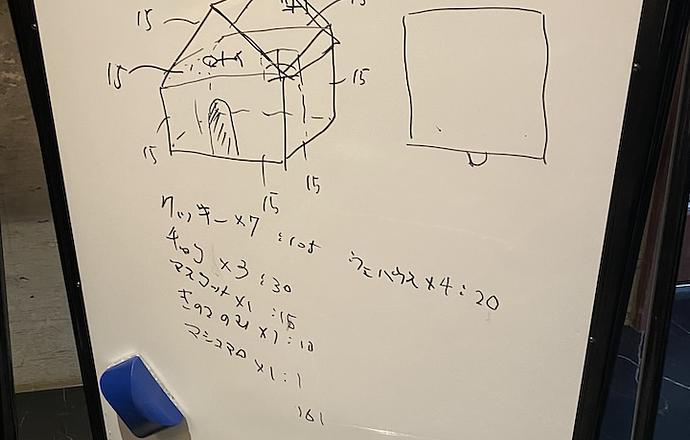 15
15
15
15
15
15
15
15
クッキー×7 :105
ウェハウス×4:20
チョコ×3:30
マスコット×1:15
きのこの山×1:10
マシュマロ×1:1
161